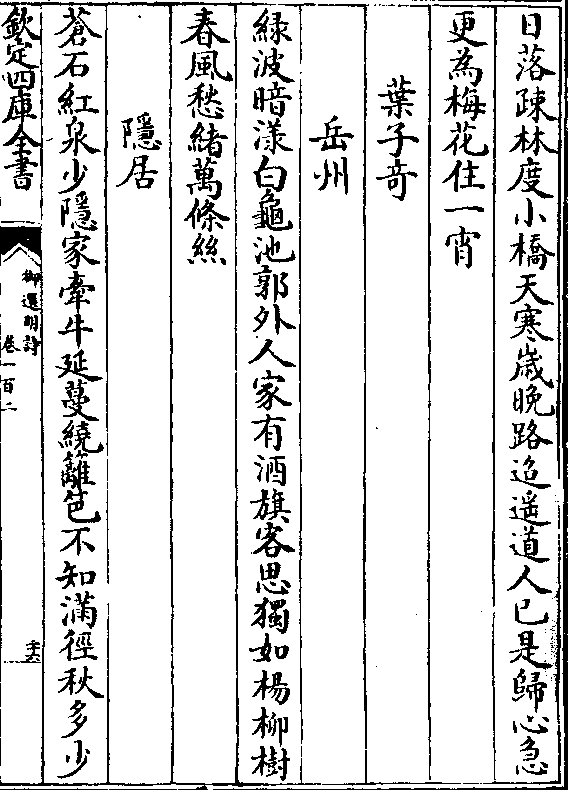 日落疎林度小橋天寒歳晩路迢遥道人已是歸心急
更為梅花住一宵
葉子奇
岳州
緑波暗漾白龜池郭外人家有酒旗客思獨如楊柳樹
春風愁緒萬條絲
隱居
蒼石紅泉少隱家牽牛延蔓繞籬笆不知滿徑秋多少
欽定四庫全書
御選明詩
卷一百二